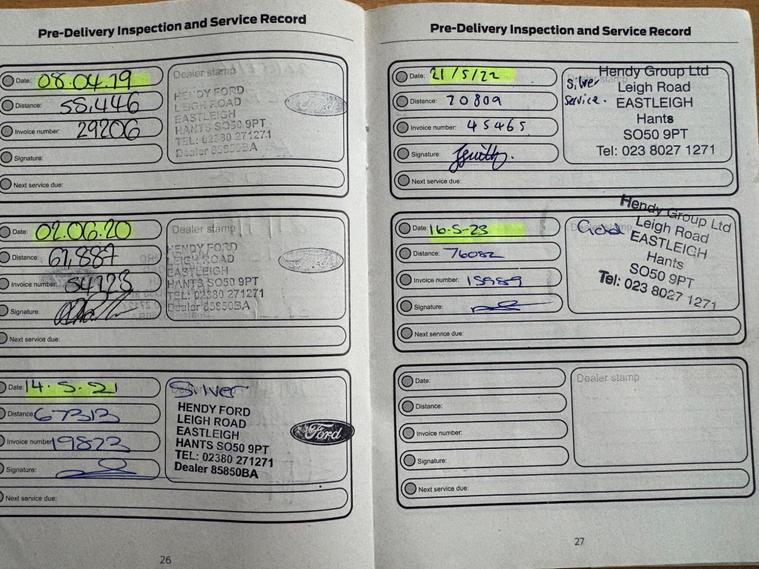 Pre-Delivery Inspection and Service Record
Date: 08.04.19
Distance: 58,446
Invoice number: 29206
Signature:
Next service due:
Dealer stamp
HENDY FORD
LEIGH ROAD
EASTLEIGH
HANTS SO50 9PT
TEL: 02380 271271
Dealer 85850BA
Date: 02.06.20
Distance: 61,887
Invoice number: 84923
Signature:
Next service due:
Dealer stamp
HENDY FORD
LEIGH ROAD
EASTLEIGH
HANTS SO50 9PT
TEL: 02380 271271
Dealer 85850BA
Date: 14.5.21
Distance: 67313
Invoice number: 19823
Signature:
Next service due:
Silver
HENDY FORD
LEIGH ROAD
EASTLEIGH
HANTS SO50 9PT
TEL: 02380 271271
Dealer 85850BA
Ford
26
Pre-Delivery Inspection and Service Record
Date: 21/5/22
Distance: 70809
Invoice number: 45465
Signature:
Next service due:
Silver
Service.
Hendy Group Ltd
Leigh Road
EASTLEIGH
Hants
SO50 9PT
Tel: 023 8027 1271
Date: 16-5-23
Distance: 76082
Invoice number: 15989
Signature:
Next service due:
Hendy Group Ltd
Leigh Road
EASTLEIGH
Hants
SO50 9PT
Tel: 023 8027 1271
Date:
Distance:
Invoice number:
Signature:
Next service due:
Dealer stamp
27